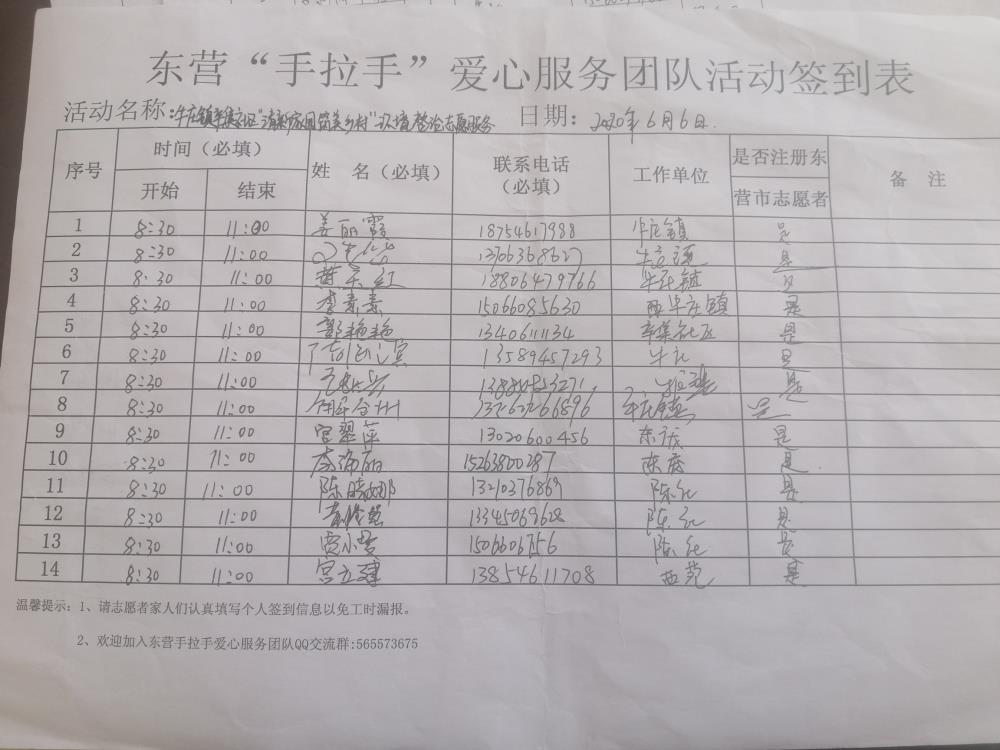 东营“手拉手”爱心服务团队活动签到表
活动名称：牛庄镇 “清 家园 美乡村”环境整治志愿服务 日期：2020年6月6日.
序号 时间（必填） 姓 名（必填） 联系电话（必填） 工作单位 是否注册东营市志愿者 备 注
开始 结束
1 8:30 11:00 姜丽霞 18754617988 牛庄镇 是
2 8:30 11:00 13706368627 牛庄镇 是
3 8:30 11:00 红 18806479766 牛庄镇 是
4 8:30 11:00 李素素 15066085630 西牛庄镇 是
5 8:30 11:00 郭艳艳 13406111134 辛集社区 是
6 8:30 11:00 滨 13589457293 牛社 是
7 8:30 11:00 是
8 8:30 11:00 州 牛庄镇 是
9 8:30 11:00 宫翠萍 13020600456 东 是
10 8:30 11:00 李海丽 15263800287 陈庄 是.
11 8:30 11:00 陈晓娜 13210376869 陈社 是
12 8:30 11:00 13345069628 陈社 是
13 8:30 11:00 贾小雪 1506606756 陈社 是
14 8:30 11:00 宫立建 13854611708 西苑 是
温馨提示：1、请志愿者家人们认真填写个人签到信息以免工时漏报。
2、欢迎加入东营手拉手爱心服务团队QQ交流群:565573675